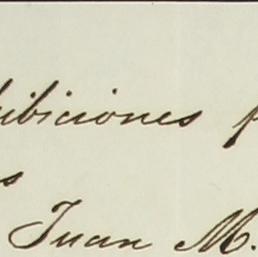 ibiciones
s
Juan M.